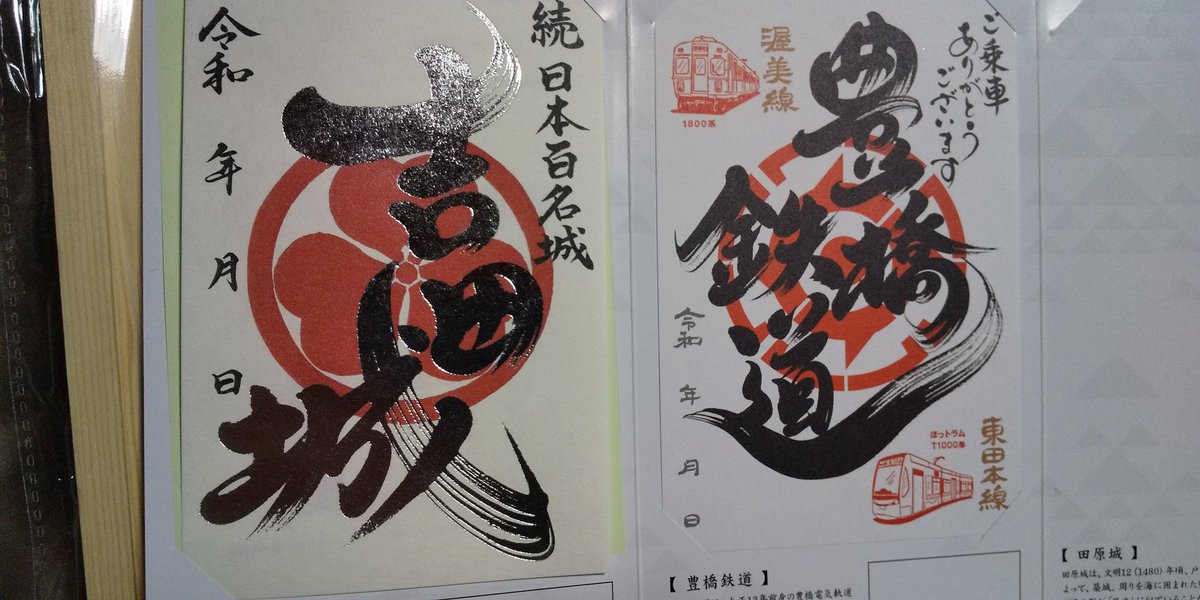 続日本百名城
吉田城
令和 年 月 日
ご乗車
ありがとう
ございます
豊橋
鉄道
渥美線
1800系
令和 年 月 日
東田本線
ほっトラム
T1000形
【 豊橋鉄道 】
【 田原城 】
田原城は、文明12(1480)年頃、戸
よって、築城。周りを海に囲まれた